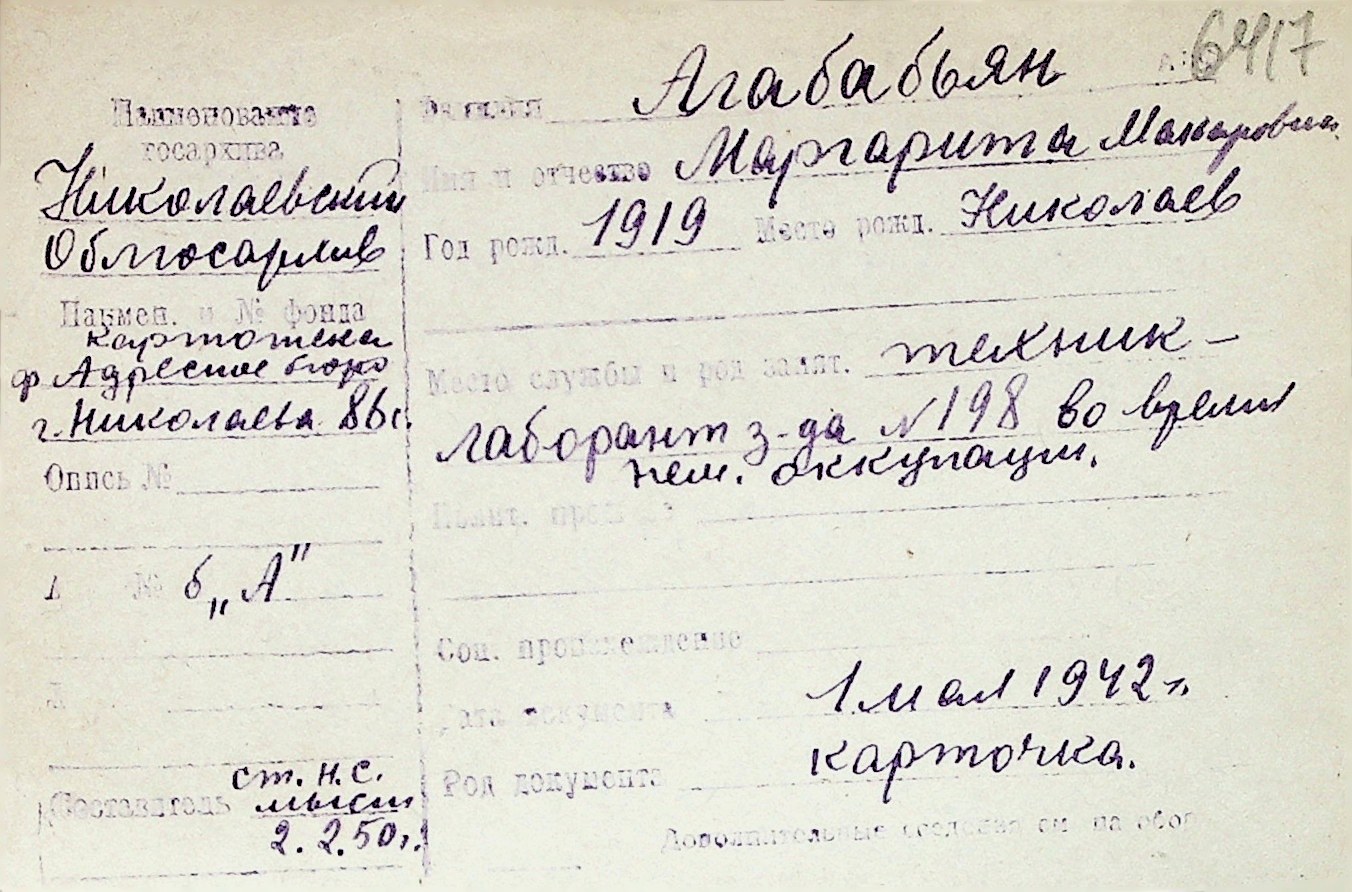 6417
Наименование
госархива
Николаевский
Облгосархив
Наимен. и № фонда
картотека
ф Адресное бюро
г. Николаева 86г.
Опись №
№ б„А"
Составитель
ст. н. с.
2. 2. 50г.
Фамилия Агабабьян
Имя и отчество Маргарита Макаровна
Год рожд. 1919 Место рожд. Николаев
Место службы и род занят. техник –
лаборант з-да №198 во время
нем. оккупации.
Полит.
Соц. происхождение
Дата документа 1 мая 1942 г.
Род документа карточка.
Дополнительные сведения см на обор